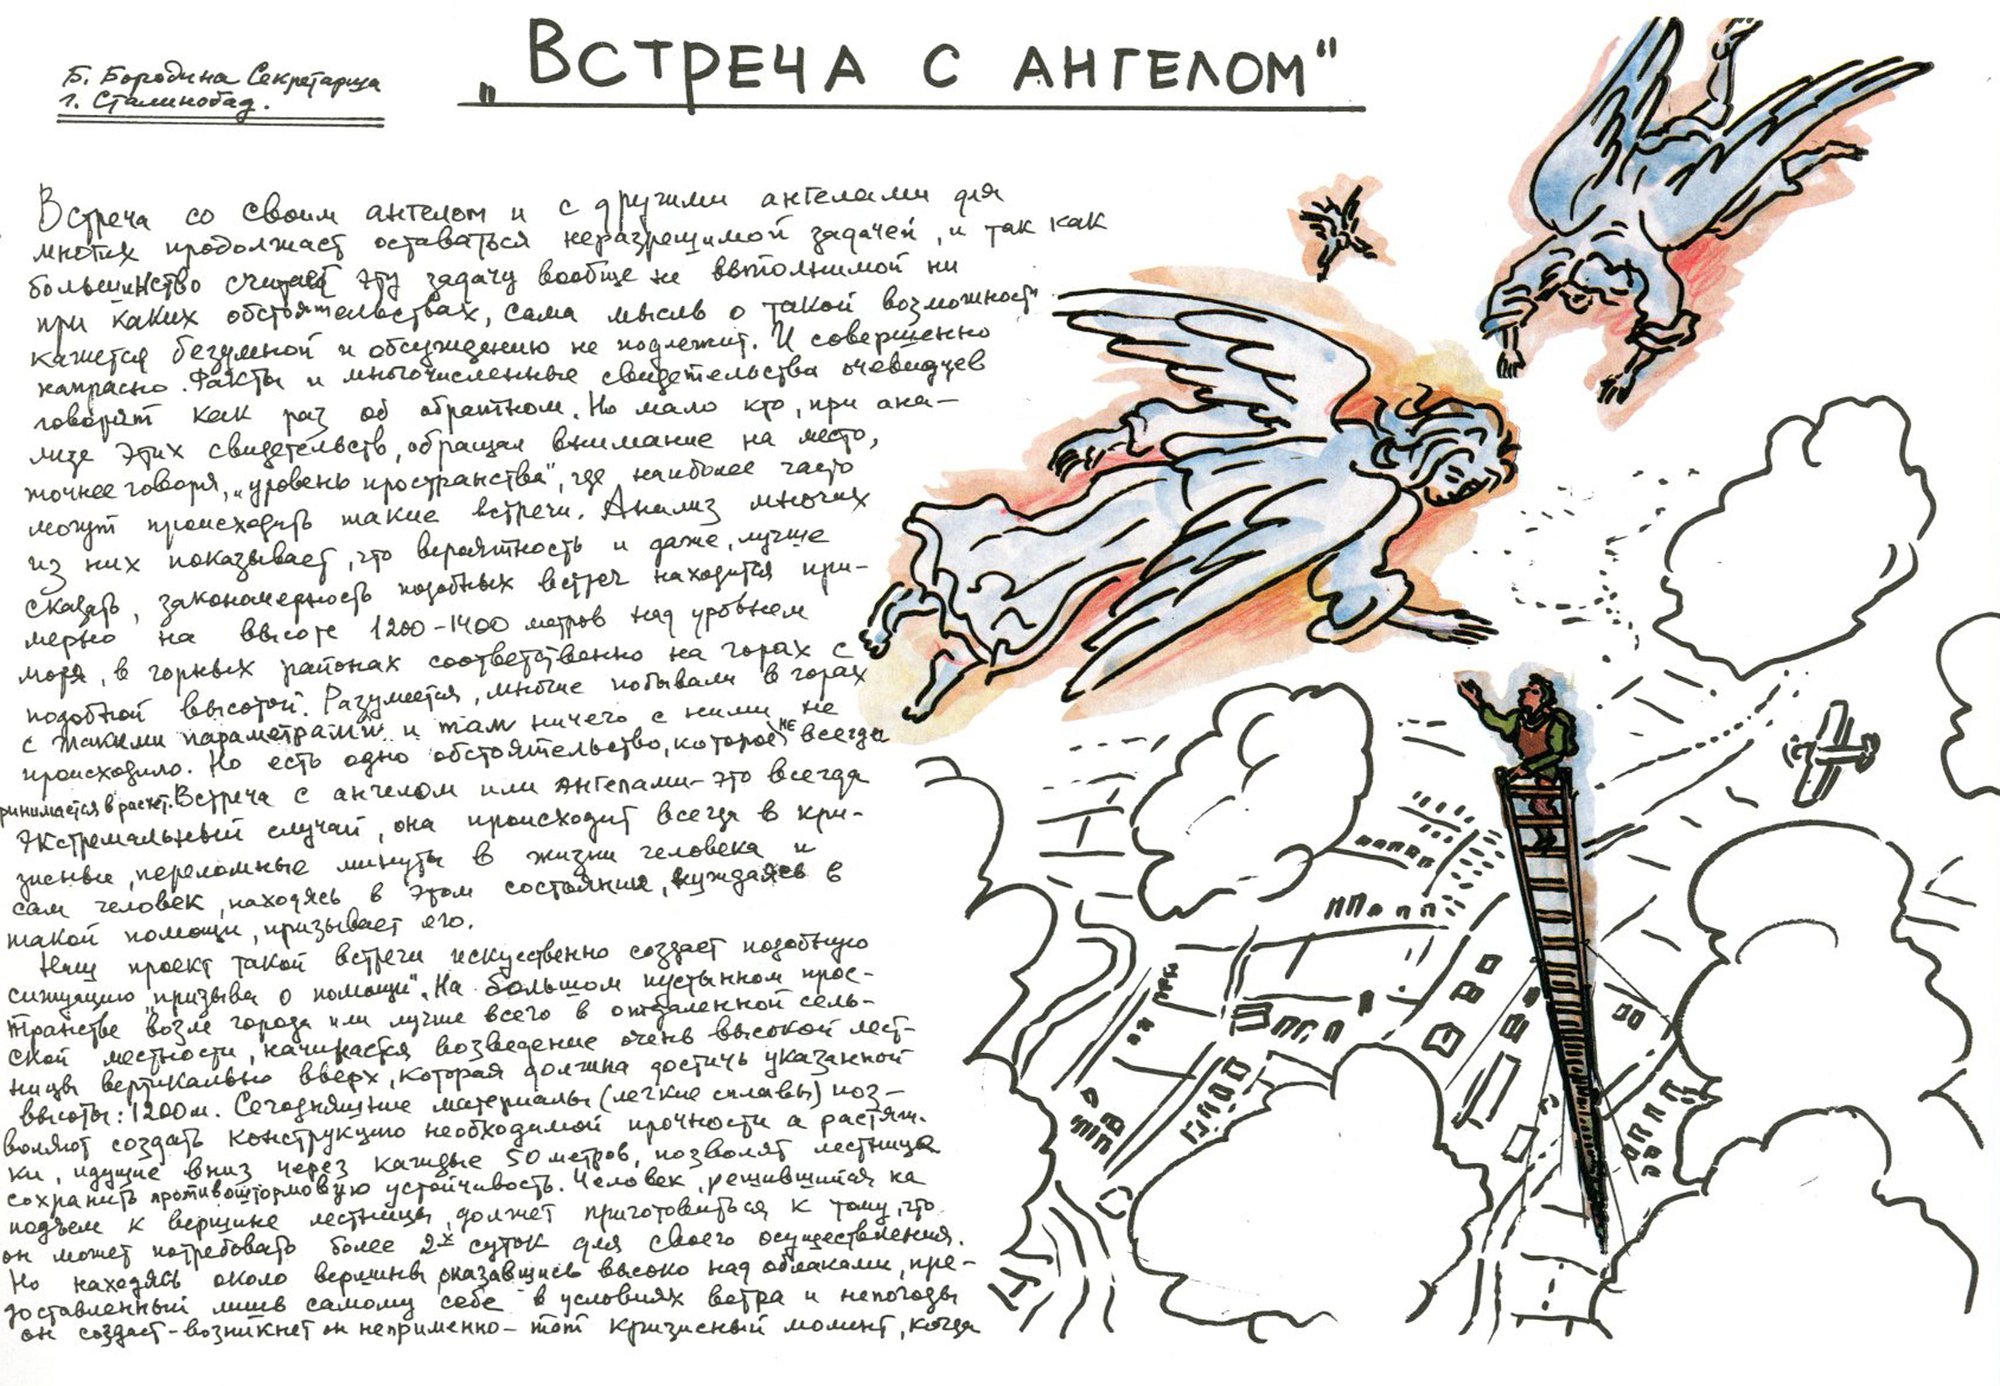 „Встреча с ангелом"
Б. Бородина Секретарша
г. Сталинобад.
Встреча со своим ангелом и с другими ангелами для
многих продолжает оставаться неразрешимой задачей, и так как
большинство считает эту задачу вообще не выполнимой ни
при каких обстоятельствах, сама мысль о такой возможности
кажется безумной и обсуждению не подлежит. И совершенно
напрасно. Факты и многочисленные свидетельства очевидцев
говорят как раз об обратном. Но мало кто, при ана-
лизе этих свидетельств, обращал внимание на место,
точнее говоря, „уровень пространства", где наиболее часто
могут происходить такие встречи. Анализ многих
из них показывает, что вероятность и даже, лучше
сказать, закономерность подобных встреч находится при-
мерно на высоте 1200-1400 метров над уровнем
моря, в горных районах соответственно на горах с
подобной высотой. Разумеется, многие побывали в горах
с такими параметрами и там ничего с ними не
происходило. Но есть одно обстоятельство, которое не всегда
ринимается в расчет. Встреча с ангелом или ангелами - это всегда
экстремальный случай, она происходит всегда в кри-
зисные, переломные минуты в жизни человека и
сам человек, находясь в этом состоянии, нуждаясь в
такой помощи, призывает его.
Наш проект такой встречи искуственно создает подобную
ситуацию „призыва о помощи". На большом пустынном прос-
транстве возле города или лучше всего в отдаленной сель-
ской местности, начинается возведение очень высокой лест-
ницы вертикально вверх, которая должна достичь указанной
высоты: 1200м. Сегодняшние материалы (легкие сплавы) поз-
воляют создать конструкцию необходимой прочности а растяж-
ки, идущие вниз через каждые 50 метров, позволят лестнице
сохранить противоштормовую устойчивость. Человек, решившийся на
подъем к вершине лестницы, должен приготовиться к тому, что
он может потребовать более 2х суток для своего осуществления.
Но находясь около вершины, оказавшись высоко над облаками, пре-
доставленный лишь самому себе в условиях ветра и непогоды
он создаст - возникнет он неприменно - тот кризисный момент, когда